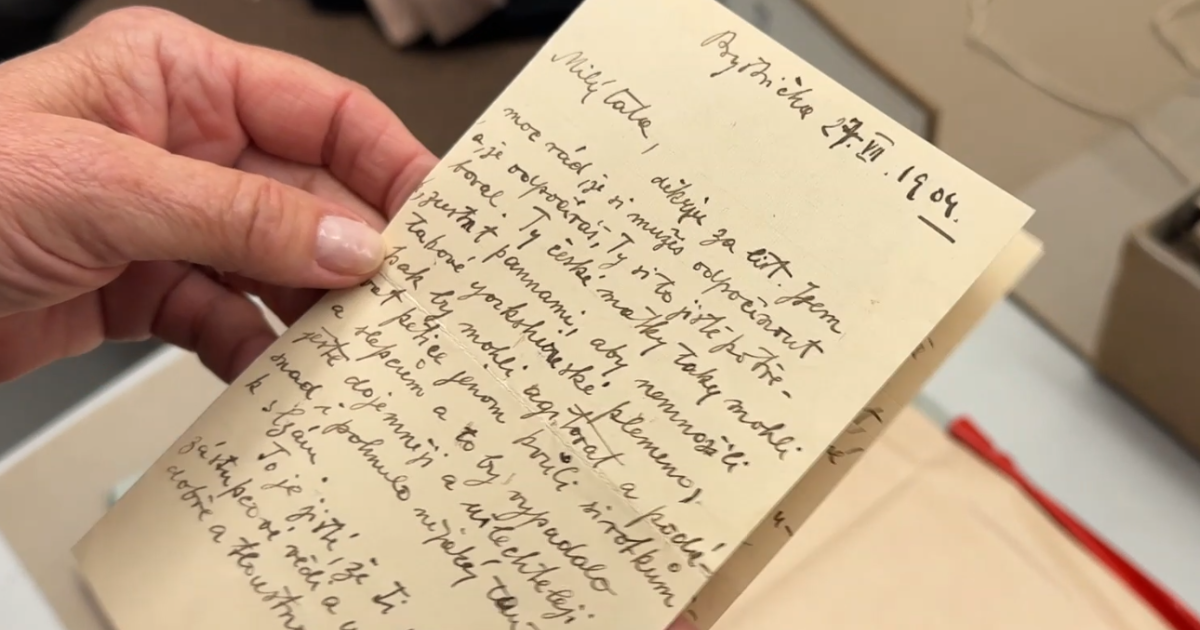 Bystrička 27.VII. 1904.
Milý tata,
děkuju za list. Jsem
moc rád, že si můžeš odpočinout
a že odpočíváš, Ty si to jistě potře-
boval. Ty české matky taky mohli
zustat pannami, aby nemnožili
takové yorkshireské plemeno,
pak by mohli agitovat a podá-
vat petice jenom kvůli sirotkum
a slepcum a to by vypadalo
ještě dojemněji a ušlechtileji
snad i pohnulo nějaký
k slzám.
To je jisté, že Ti
zástupcové vědí a
dobře a